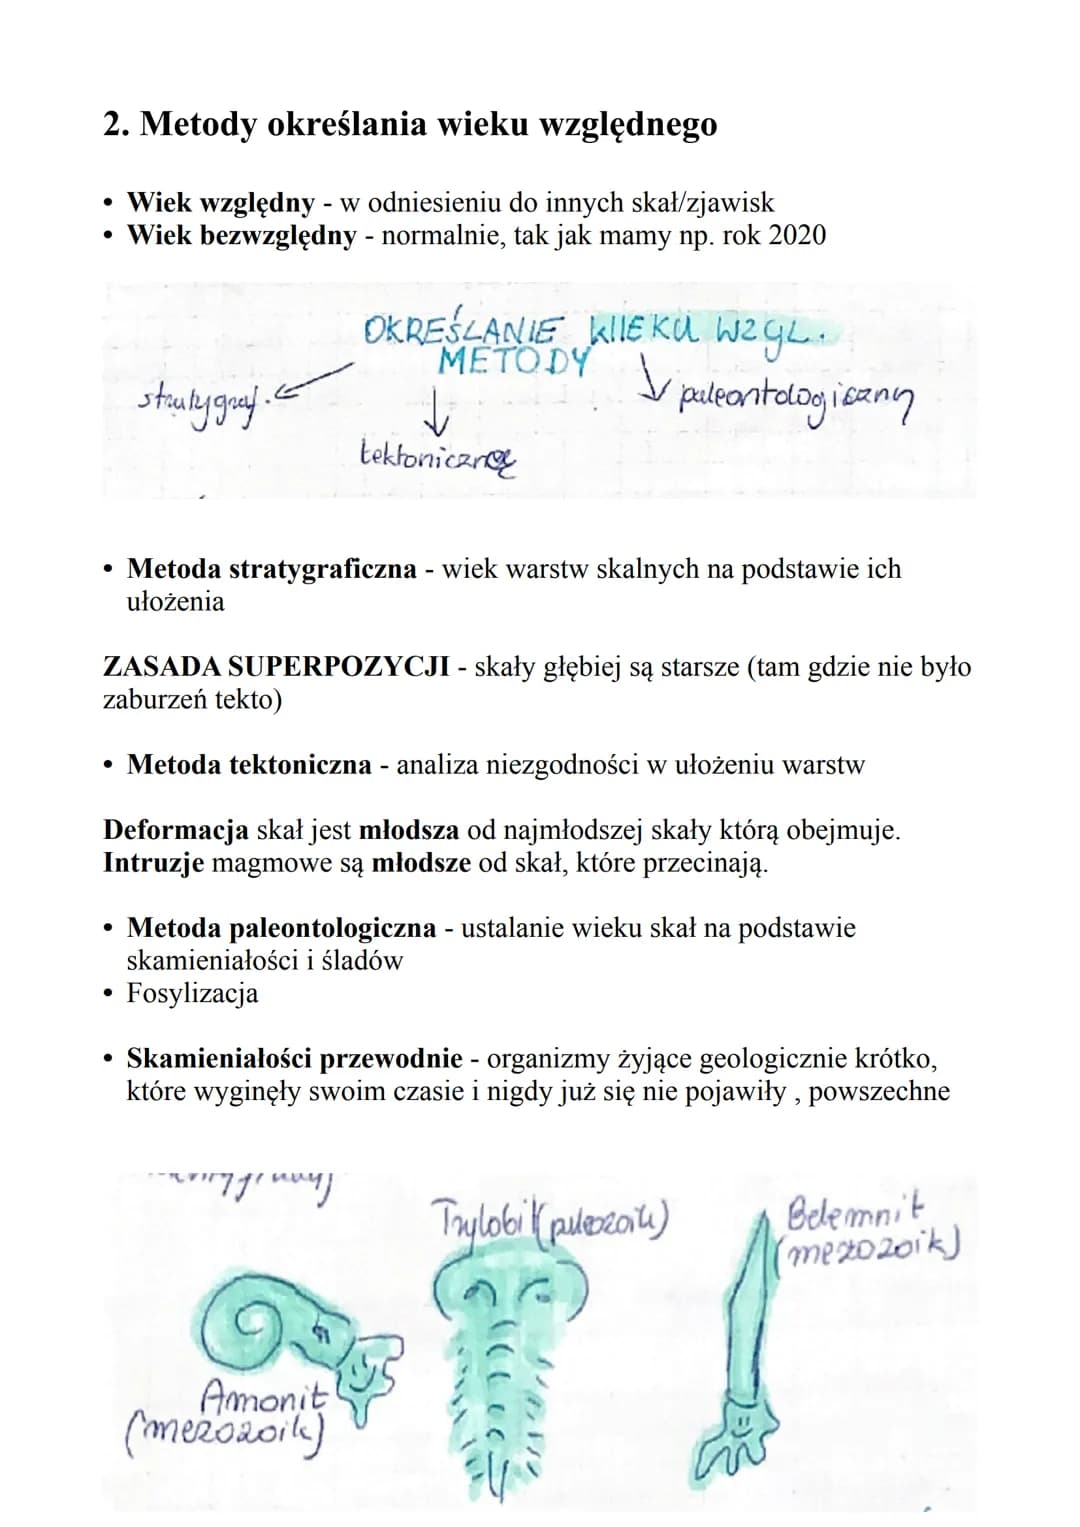 2. Metody określania wieku względnego
• Wiek względny - w odniesieniu do innych skał/zjawisk
• Wiek bezwzględny - normalnie, tak jak mamy np. rok 2020
OKREŚLANIE WIEKU WZGL.
METODY
stratygraf.
paleontologiczny
tektoniczną
• Metoda stratygraficzna - wiek warstw skalnych na podstawie ich
ułożenia
ZASADA SUPERPOZYCJI - skały głębiej są starsze (tam gdzie nie było
zaburzeń tekto)
• Metoda tektoniczna - analiza niezgodności w ułożeniu warstw
Deformacja skał jest młodsza od najmłodszej skały którą obejmuje.
Intruzje magmowe są młodsze od skał, które przecinają.
• Metoda paleontologiczna - ustalanie wieku skał na podstawie
skamieniałości i śladów
• Fosylizacja
• Skamieniałości przewodnie - organizmy żyjące geologicznie krótko,
które wyginęły swoim czasie i nigdy już się nie pojawiły , powszechne
Trylobit (paleozoik)
Belemnit
(mezozoik)
Amonit
(mezozoik)